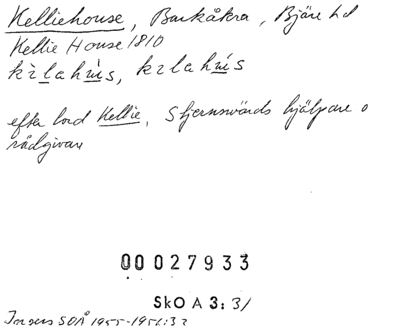 Kelliehouse, Barkåkra, Bjäre hd
Kellie House 1810
kìlahús, kìlahús
efter lord Kellie, Stjernswärds hjälpare o
rådgivare
00027933
SkO A 3: 31
Ingers SOÅ 1955-1956:32